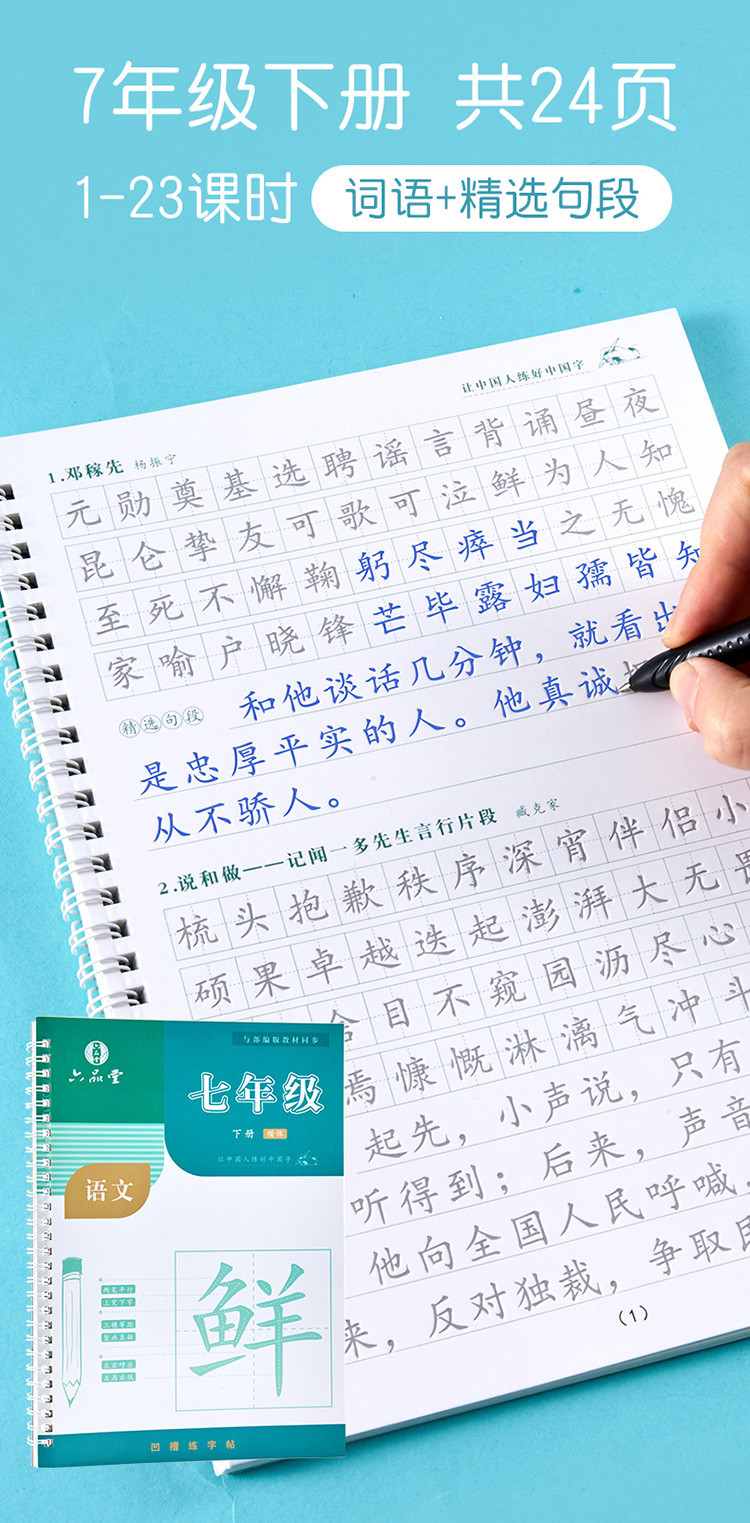 7年级下册 共24页
1-23课时 词语+精选句段
让中国人练好中国字
1.邓稼先 杨振宁
元勋奠基选聘谣言背诵昼夜
昆仑挚友可歌可泣鲜为人知
至死不懈鞠躬尽瘁当之无愧
家喻户晓锋芒毕露妇孺皆知
精选句段 和他谈话几分钟，就看出
是忠厚平实的人。他真诚
从不骄人。
2.说和做——记闻一多先生言行片段 臧克家
梳头抱歉秩序深宵伴侣小
硕果卓越迭起澎湃大无畏
目不窥园沥尽心
焉慷慨淋漓气冲斗
起先，小声说，只有
听得到；后来，声音
他向全国人民呼喊，
来，反对独裁，争取民
(1)
六品堂
与部编版教材同步
七年级
下册 楷体
让中国人练好中国字
语文
两笔平行
上宽下窄
三横等距
竖画直挺
左右呼应
左高右低
鲜
凹槽练字帖